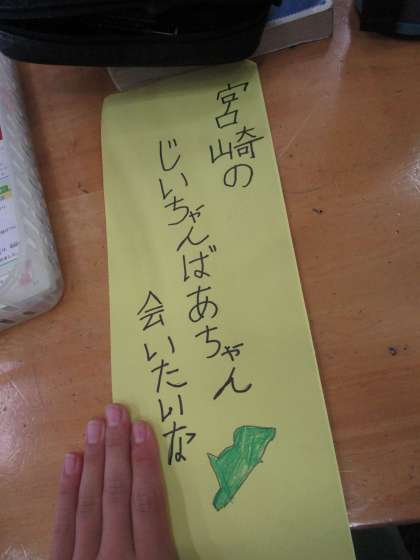 宮崎の
じいちゃんばあちゃん
会いたいな